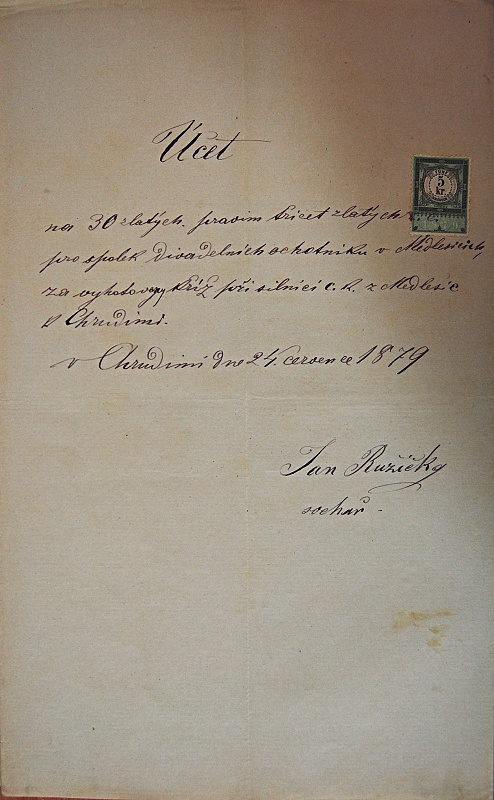 Účet
5
kr.
na 30 zlatých. pravim třicet zlatých
pro spolek divadelních ochotníku v Medlesicích,
za vyhotovený kříž při silnici c. k. z Medlesic
k Chrudimi.
v Chrudimi dne 24. července 1879
Jan Ružička
sochař -